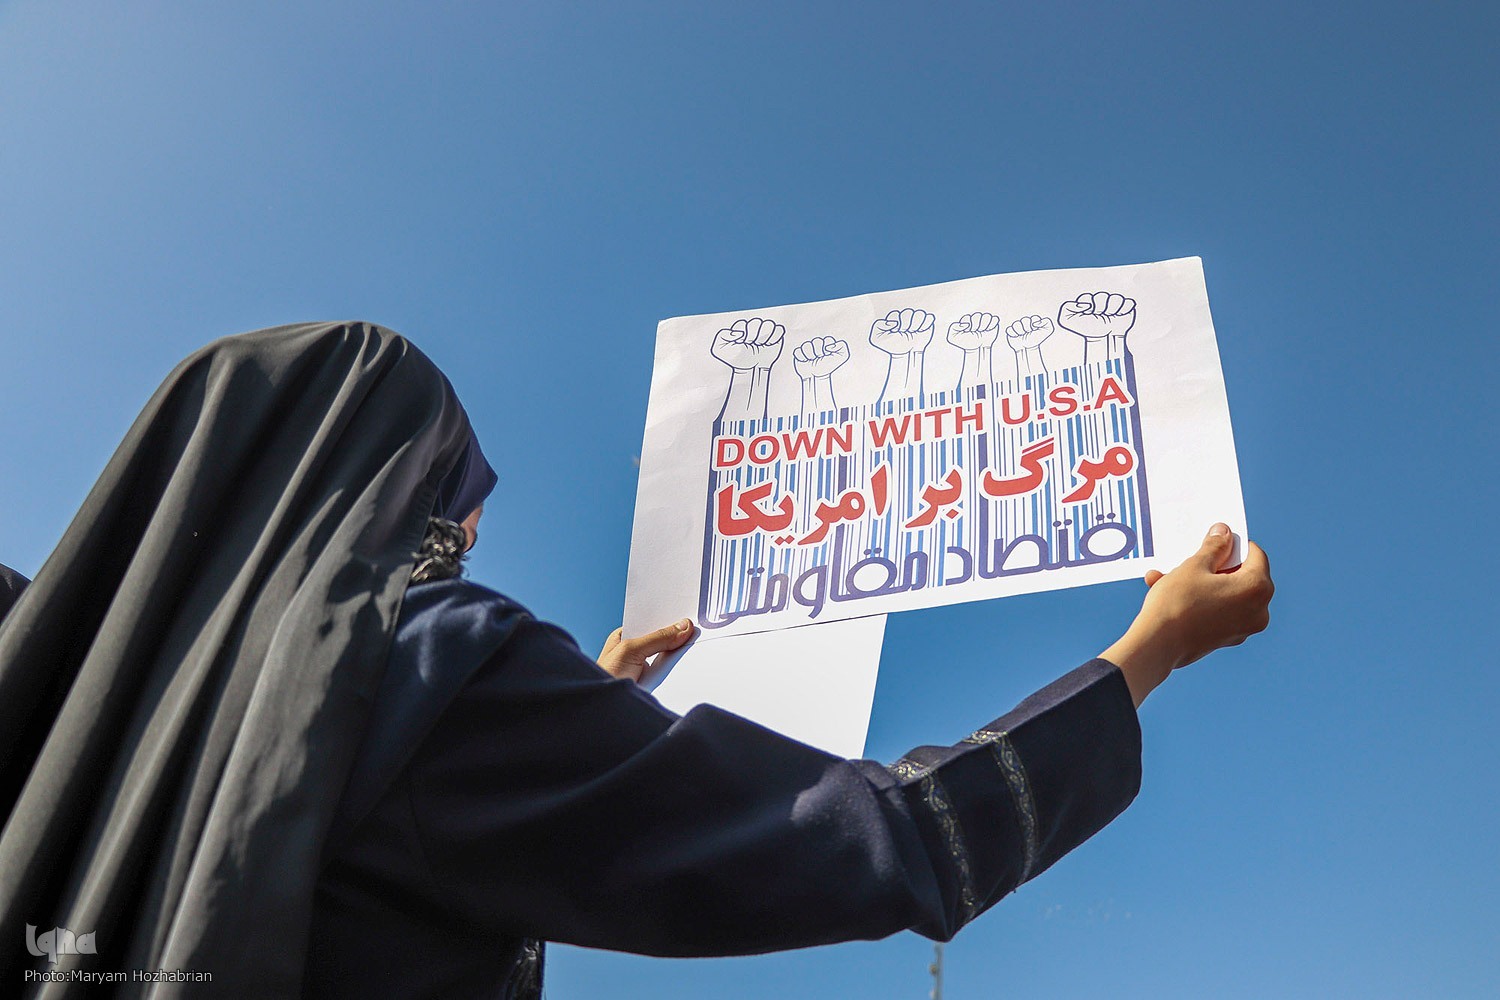 DOWN WITH U.S.A
مرگ بر امریکا
اقتصاد مقاومتی
Iqna
Photo:Maryam Hozhabrian